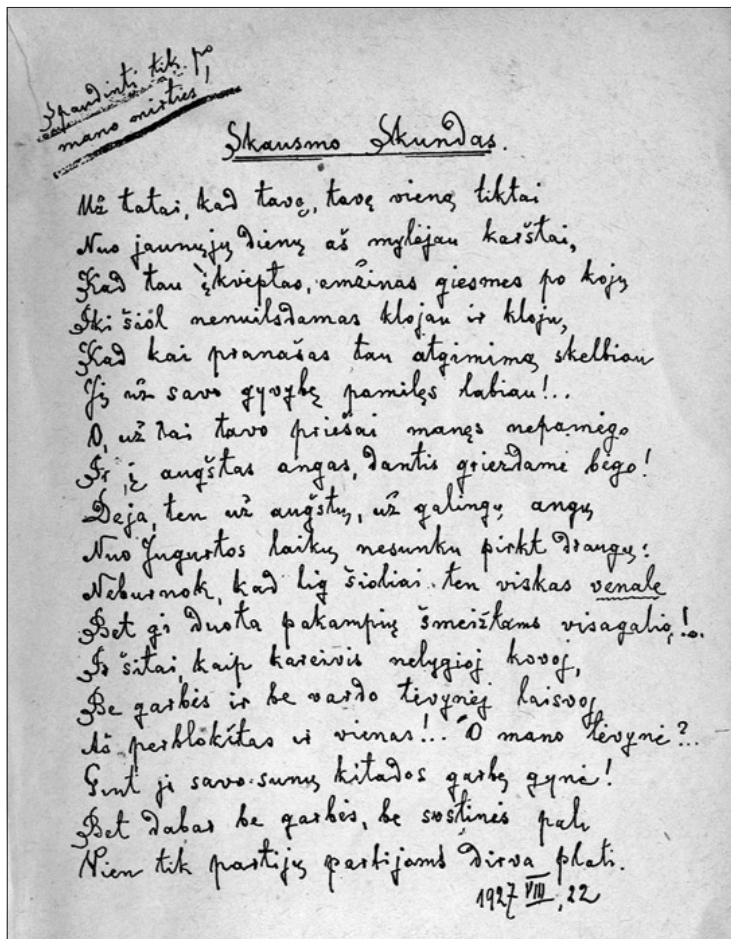 Spaudinti tik po
mano mirties!
Skausmo Skundas.
Už tatai, kad tavę, tavę vieną tiktai
Nuo jaunųjų dienų aš mylėjau karštai,
Kad tau įkvėptas, amžinas giesmes po kojų
Iki šiol nenuilsdamas klojau ir kloju,
Kad kai pranašas tau atgimimą skelbiau
Ją už savo gyvybę pamilęs labiau!..
O, už tai tavo priešai manęs nepamėgo
Ir į augštas angas, dantis grieždami bėgo!
Deja, ten už augštų, už galingų angų
Nuo Jugurtos laikų nesunku pirkt draugų:
Neburnok, kad lig šioliai ten viskas venale
Bet gi duota pakampių šmeižtams visagalią!..
Ir šitai, kaip kareivis nelygioj kovoj,
Be garbės ir be vardo tėvynėj laisvoj
Aš perblokštas ir vienas!... O mano tėvynė?..
Gint ji savo sunų kitados garbę gynė!
Bet dabar be garbės, be sostinės pati
Vien tik partijų partijoms dirva plati.
1927 VIII, 22